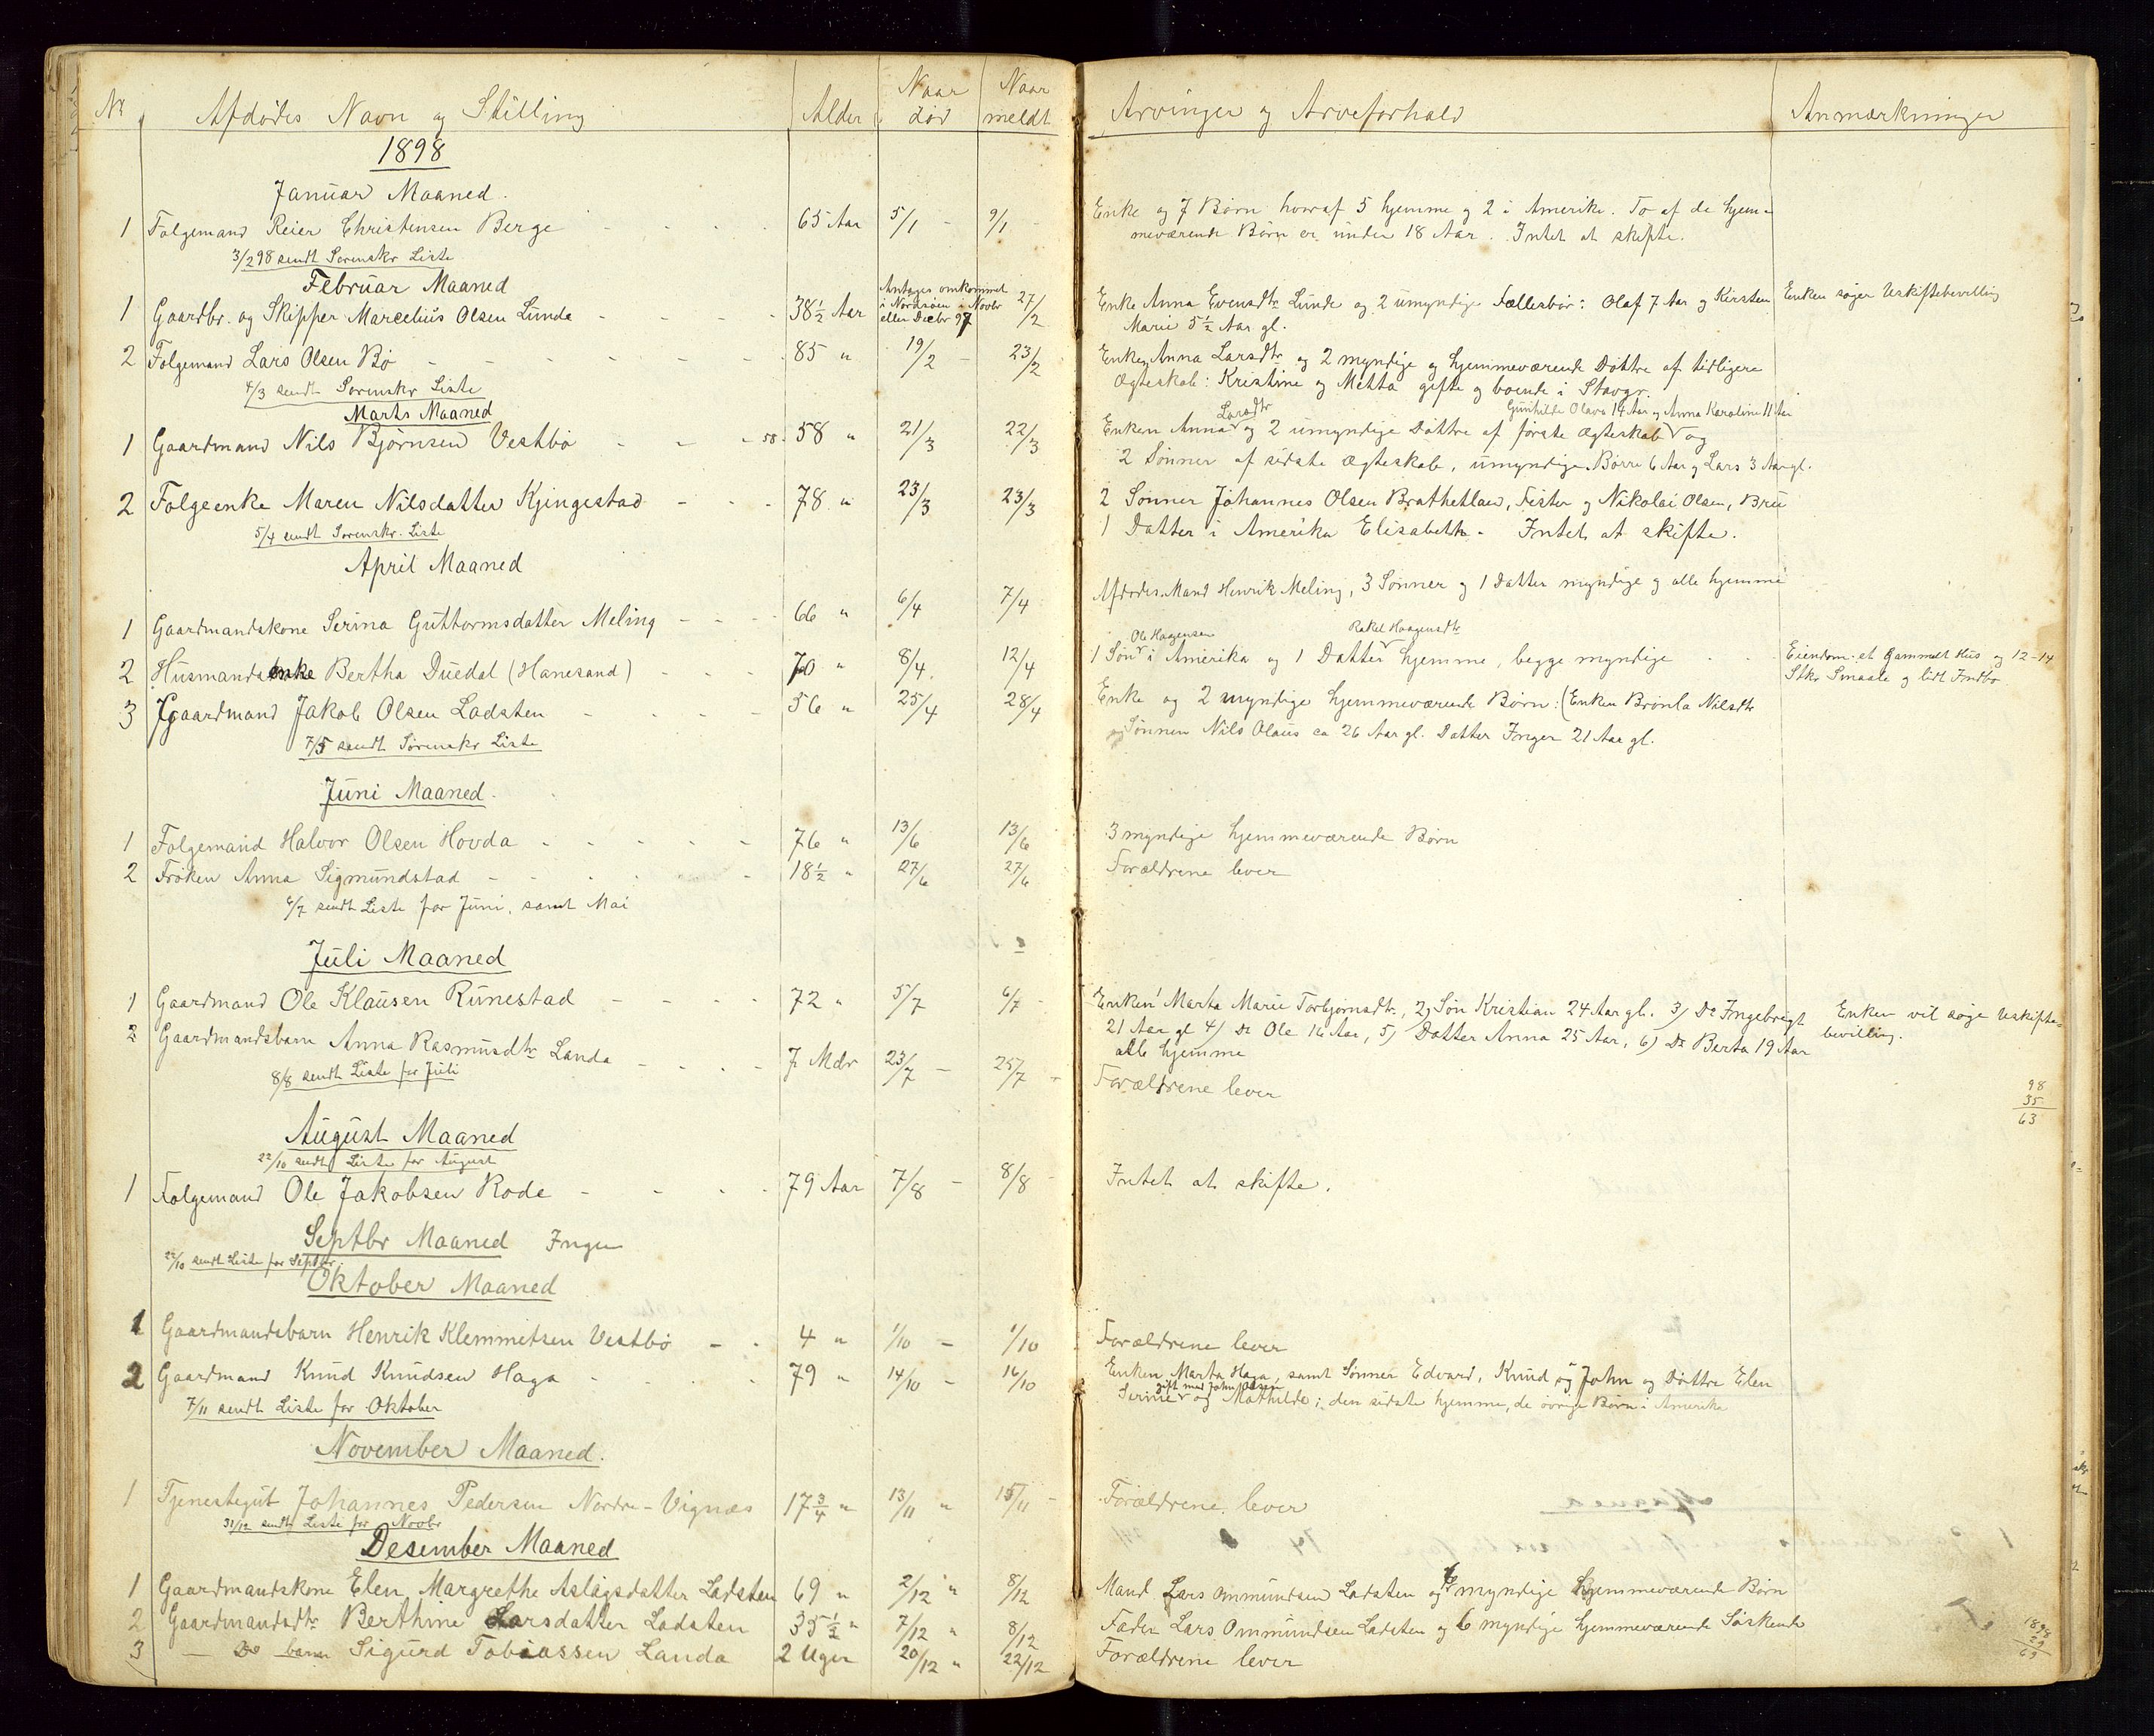 No. Afdødes Navn og Stilling Alder Naar død Naar meldt Arvinger og Arveforhold Anmærkninger
1898
Januar Maaned.
1 Folgemand Reier Christensen Berge 65 Aar 5/1 9/1 Enke og 7 Børn hvoraf 5 hjemme og 2 i Amerika. To af de hjem-
meværende Børn er under 18 Aar. Intet at skifte.
3/2 98 sendt Sorenskr Liste
Februar Maaned
1 Gaardbr. og Skipper Marcelius Olsen Lunde 38½ Aar Antages omkommet i Nordsøen i Novbr eller Decbr 97 27/2 Enke Anna Evensdtr Lunde og 2 umyndige Fællesbør: Olaf 7 Aar og Kirsten Enken søger Uskiftebevilling
Marie 5½ Aar gl.
2 Folgemand Lars Olsen Bø 85 " 19/2 23/2 Enken Anna Larsdtr og 2 myndige og hjemmeværende Døttre af tidligere
Ægteskab: Kristine og Metta gifte og boende i Stavgr.
4/3 sendt Sorenskr Liste
Marts Maaned
1 Gaardmand Nils Bjørnsen Vestbø 58 58 " 21/3 22/3 Enken Anna Larsdtr og 2 umyndige Døttre af første Ægteskab Gunhilde Olava 14 Aar og Anna Karoline 11 Aar og
2 Sønner af sidste Ægteskab, umyndige. Børre 6 Aar og Lars 3 Aar gl.
2 Folgeenke Maren Nilsdatter Kjingestad 78 " 23/3 23/3 2 Sønner Johannes Olsen Brathetlaed, Fister og Nikolai Olsen, Bru
1 Datter i Amerika Elisabeth. Intet at skifte.
5/4 sendt Sorenskr. Liste
April Maaned
1 Gaardmandskone Serina Guttormsdatter Meling 66 " 6/4 7/4 Afdødes Mand Henrik Meling, 3 Sønner og 1 Datter myndige og alle hjemme
2 Husmandsenke Bertha Duedal (Hanesand) 70 " 8/4 12/4 1 Søn Ole Haagensen i Amerika og 1 Datter Rakel Haagensdtr hjemme, begge myndige Eiendom et Gammelt Hus og 12-14
Stkr Smaale og lidt Indbo
3 Gaardmand Jakob Olsen Ladsten 56 " 25/4 28/4 Enke og 2 myndige hjemmeværende Børn: (Enken Brønla Nilsdtr
og Sønnen Nils Olaus ca 26 Aar gl. Datter Inger 21 Aar gl.
7/5 sendt Sorenskr Liste
Juni Maaned.
1 Folgemand Halvor Olsen Hovda 76 " 13/6 13/6 3 myndige hjemmeværende Børn
2 Frøken Anna Sigmundstad 18½ " 27/6 27/6 Forældrene lever
6/7 sendt Liste for Juni, samt Mai
Juli Maaned
1 Gaardmand Ole Klausen Runestad 72 " 5/7 6/7 Enken Marta Marie Torbjørnsdtr., 2) Søn Kristian 24 Aar gl. 3) Do Ingebrigt Enken vil søge Uskifte-
21 Aar gl 4) Do Ole 16 Aar, 5) Datter Anna 25 Aar, 6) Do Berta 19 Aar bevilling.
alle hjemme
2 Gaardmandsbarn Anna Rasmusdtr Landa 7 Mdr 23/7 25/7 Forældrene lever
8/8 sendt Liste for Juli
98
35
63
August Maaned
22/10 sendt Liste for August
1 Folgemand Ole Jakobsen Rode 79 Aar 7/8 8/8 Intet at skifte.
Septbr Maaned Ingen
22/10 sendt Liste for Septbr.
Oktober Maaned
1 Gaardmandsbarn Henrik Klemmetsen Vestbø 4 " 1/10 1/10 Forældrene lever
2 Gaardmand Knud Knudsen Haga 79 " 14/10 16/10 Enken Marta Haga, samt Sønner Edvard, Knud og John og Døttre Elen
Serine gift med John Olsen og Mathilde; den sidste hjemme, de øvrige Børn i Amerika
7/11 sendt Liste for Oktober
November Maaned.
1 Tjenestegut Johannes Pedersen Nordre-Vignæs 17¾ " 13/11 " 15/11 Forældrene lever
31/12 sendt Liste for Novbr
Desember Maaned
1 Gaardmandskone Elen Margrethe Aslagsdatter Ladsten 69 " 2/12 " 8/12 Mand Lars Ommundsen Ladsten og myndige hjemmeværende Børn
2 Gaardmandsdtr Berthine Larsdatter Ladsten 35½ " 7/12 " 8/12 Fader Lars Ommundsen Ladsten og 6 myndige hjemmeværende Søskende
3 Do barn Sigurd Tobiassen Landa 2 Uger 20/12 " 22/12 Forældrene lever
1898
29
69